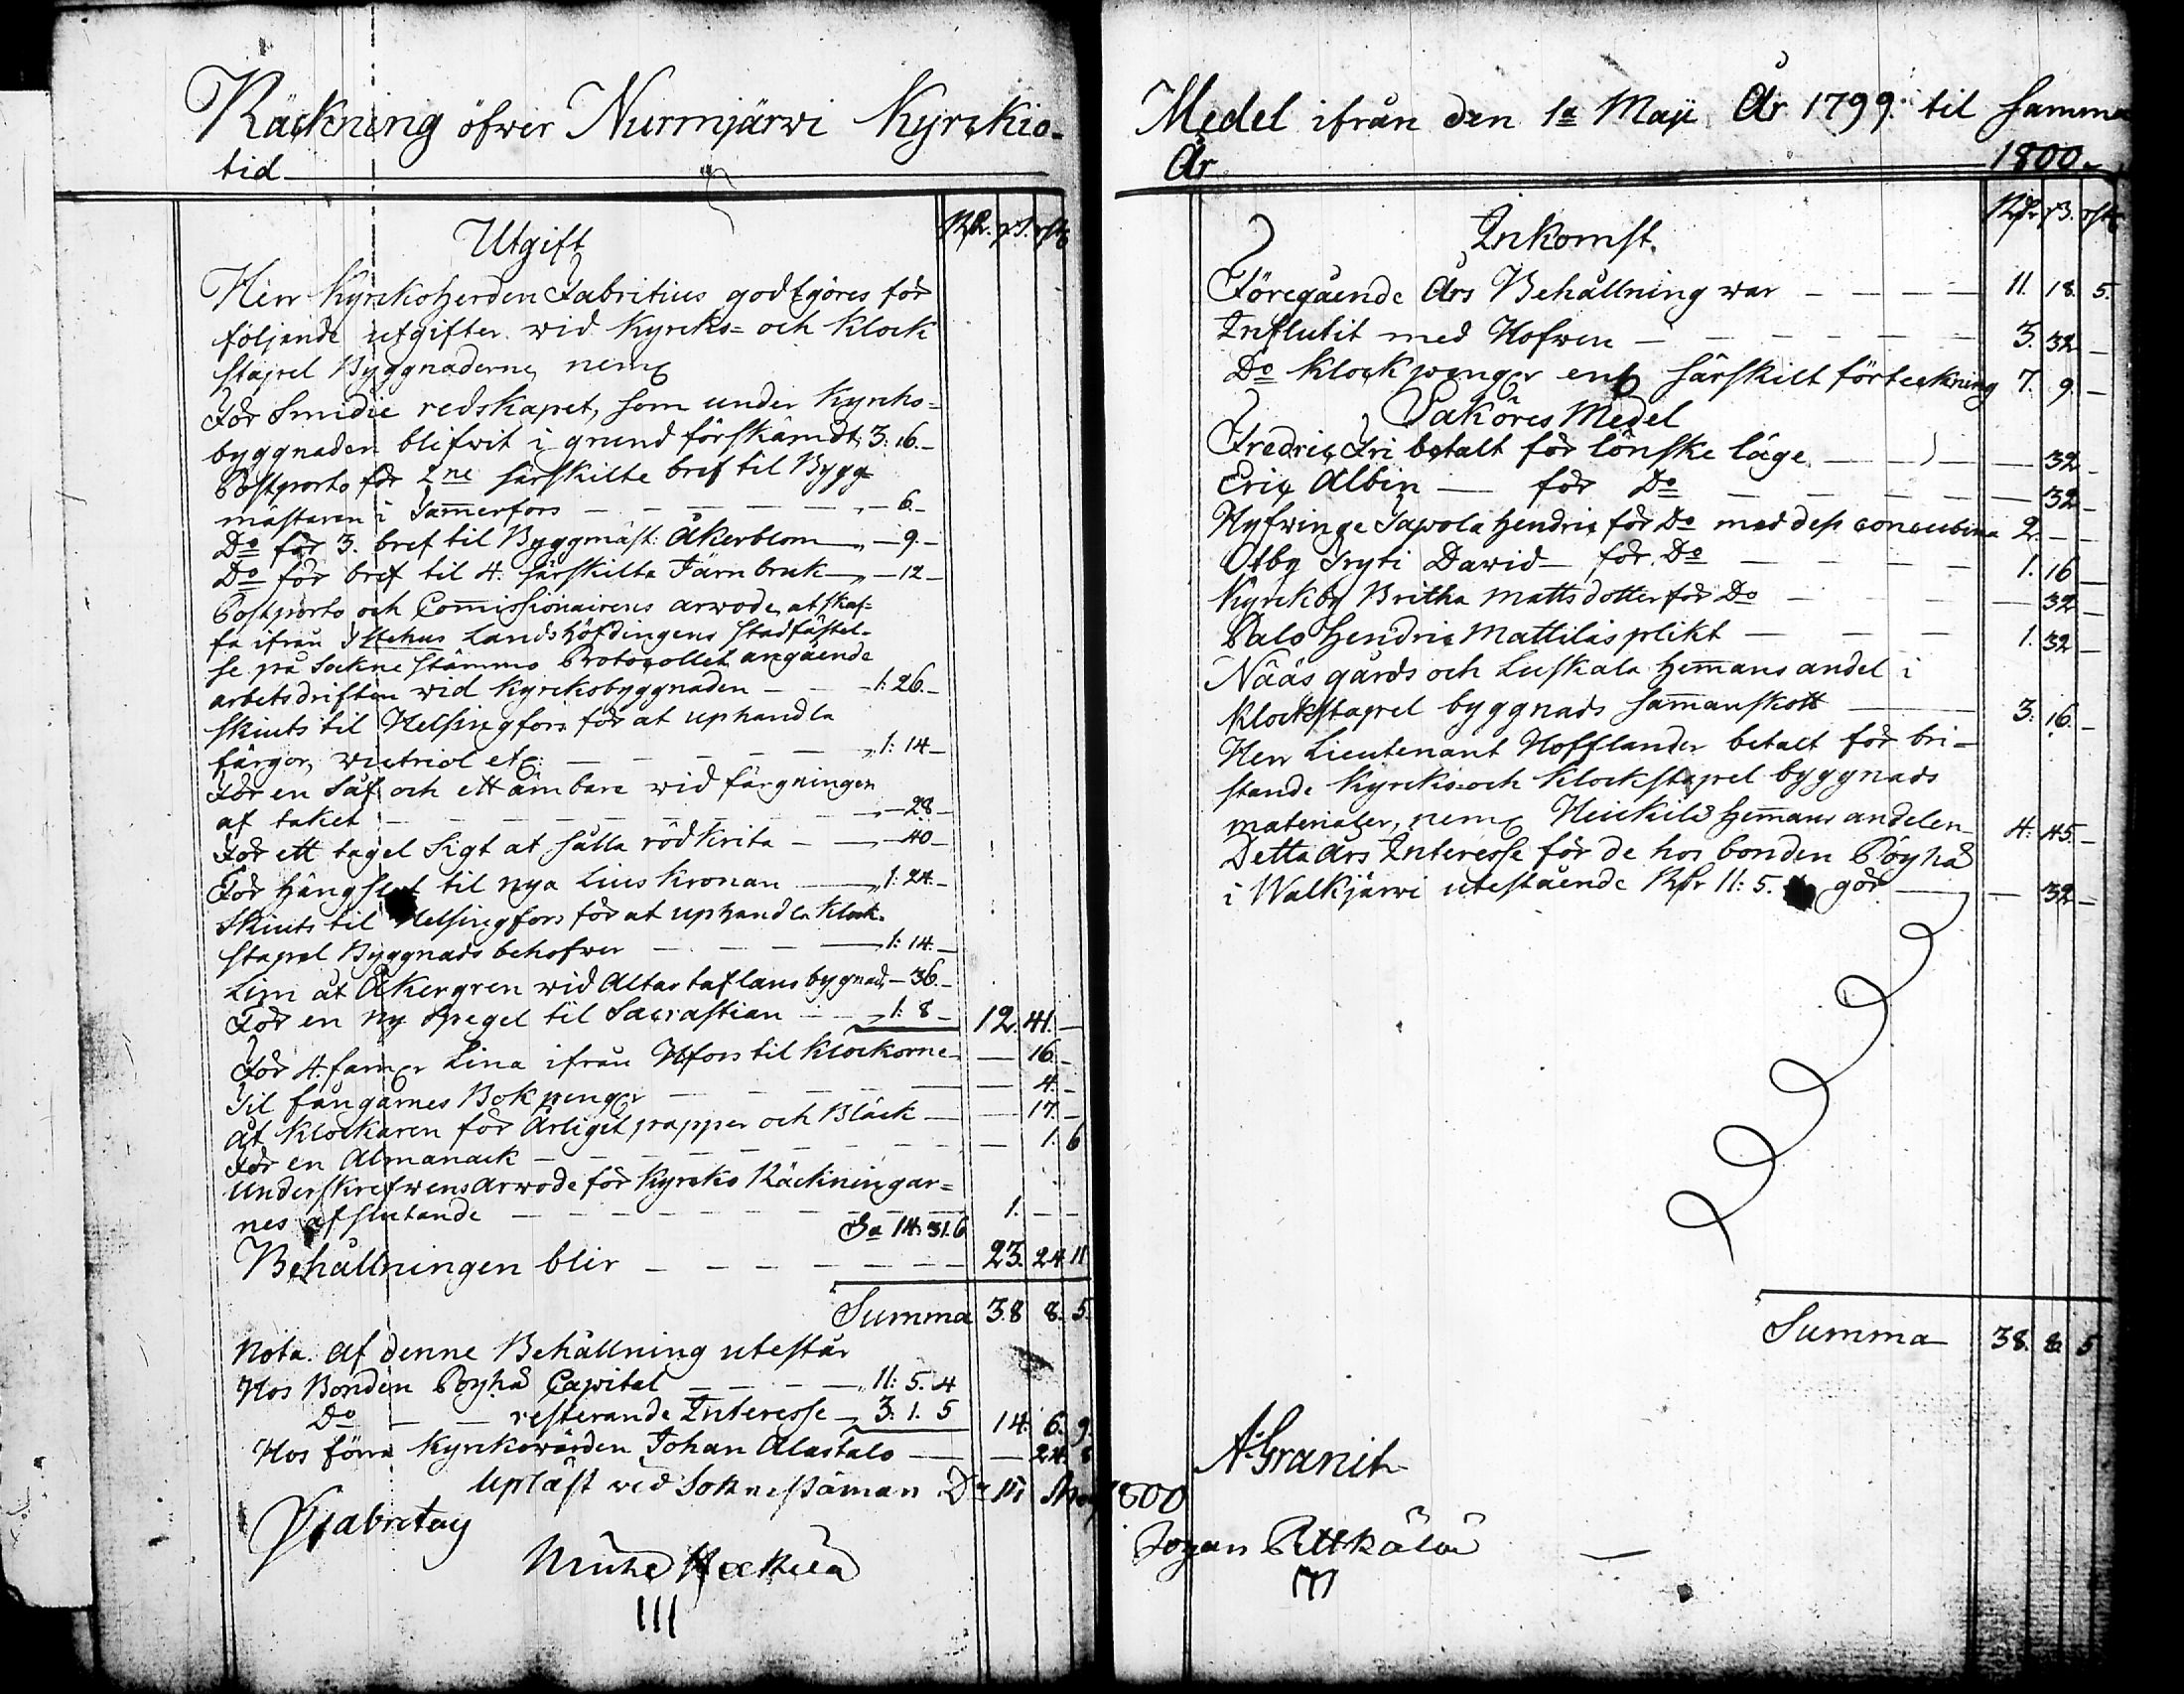 Räckning öfwer Nurmjärwi Kyrckio-
tid
Utgift
Rdr. ß. rst.
Herr Kyrckoherden Fabritius godtgöres för
följande utgifter wid Kyrcko- och Klock
stapel Byggnaderne, neml
För Smidie redskapet, som under Kyrcko-
byggnaden blifwit i grund förskämdt, 3: 16.-
Postporto för 2ne särskilte bref til Bygg-
mästaren i Tamerfors - 6.-
Do för 3. bref til Byggmäst: Åkerblom - 9.-
Do för bref til 4. särskilta Järnbruk - 12-
Postporto och Comissionairens arwode, at skaf-
fa ifrån Landshöfdingens stadfästel-
se på Sockne stämmo Protocollet angående
arbetsdriften wid Kyrckobyggnaden - 1: 26.-
skiuts til Helsingfors för at uphandla
färgor, wictriol etc: - 1: 14-
För en Såf och ett ämbare wid färgningen
af taket - 28-
För ett tagel Sigt at sålla rödkrita - 40-
För hänglset til nya Lius Kronan - 1: 24.-
Skiuts til Helsingfors för at uphandla Klock-
stapel Byggnads behofwer - 1: 14.-
Lim åt Åkergren wid Altartaflans bygnad, - 36.-
För en ny Spegel til Sacrastian - 1: 8 - 12. 41. -
För 4. famnar Lina ifrån Hfors til Klockorne - 16. -
Til fångarnes Bok pengar - 4. -
åt Klockaren för Årliget papper och Bläck - 17. -
För en Almanack - 1. 6
Underskrefwens arwode för Kyrcko Räckningar-
nes afslutande - 1. - -
Sa 14. 31. 6
Behållningen blir - 23. 24. 11
Summa 38 8. 5.
Nota. af denne Behållning utestår
Hos Bonden Pöyhä Capital - 11: 5. 4
Do - resterande Interesse - 3: 1. 5 14. 6. 9.
Hos förra Kyrckowärden Johan Alastalo - 24. 8
Upläst wid Soknestäman D 1800
Heickilä
III
Medel ifrån den 1a Maji År 1799. til samma
År 1800.
Inkomst.
Rdr. ß. rst.
Föregående Års Behållning war - 11. 18. 5.
Influtit med Hofwen - 3. 32 -
Do Klockpengar enl särskilt förteckning 7. 9. -
Sakören Medel
Fredric Fri betalt för lönske läge - 32 -
Eric Albin - för Do - 32 -
Hyfwinge Sawola Hendric för Do med dess concubina 2. - -
Otby Tryti David - för Do - 1. 16 -
Kyrckby Britha Mattsdotter för Do - 32 -
Palo Hendric Mattilas plikt - 1. 32 -
Nääs gårds och Luskala Hemans andel i
Klockstapel byggnads samanskott - 3. 16. -
Herr Lieutenant Hofflander betalt för bri-
stande Kyrcko- och Klockstapel byggnads
materialer, neml Heickilä Hemans andelen 4: 45. -
Detta Års Interesse för de hos bonden Pöyhä
i Walkjärwi utestående Rdr 11: 5. gör - 32 -
Summa 38. 8. 5
A: Granit
Johan Pitkälä